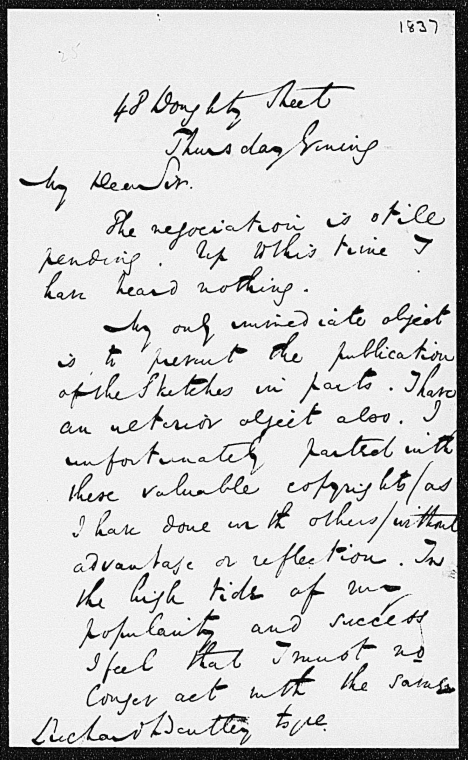 1837
25
48 Doughty Street
Thursday Evening
My Dear Sir.
The negociation is still
pending. Up to this time I
have heard nothing.
My only immediate object
is to prevent the publication
of the Sketches in parts. I have
an ulterior object also. I
unfortunately parted with
these valuable copyrights (as
I have done with others) without
advantage or reflection. In
the high tide of my
popularity and success
I feel that I must no
longer act with the same
Richard Bentley Esqre.